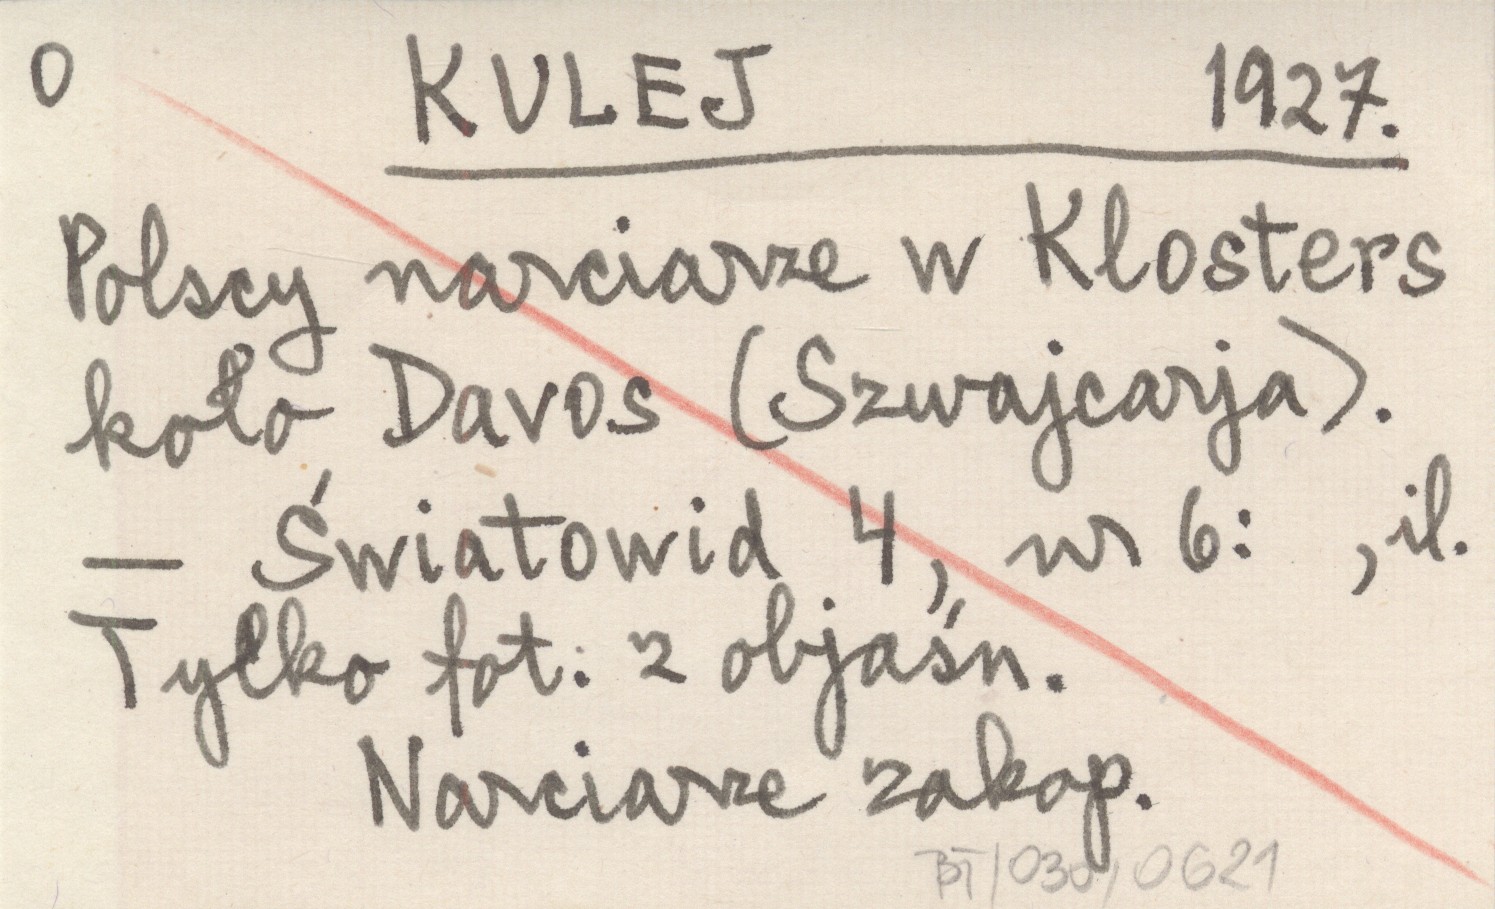 0 KULEJ 1927.
Polscy narciarze w Klosters
koło Davos (Szwajcarja).
— Światowid 4, nr 6: , il.
Tylko fot. z objaśn.
Narciarze zakop.
BT/030/0621